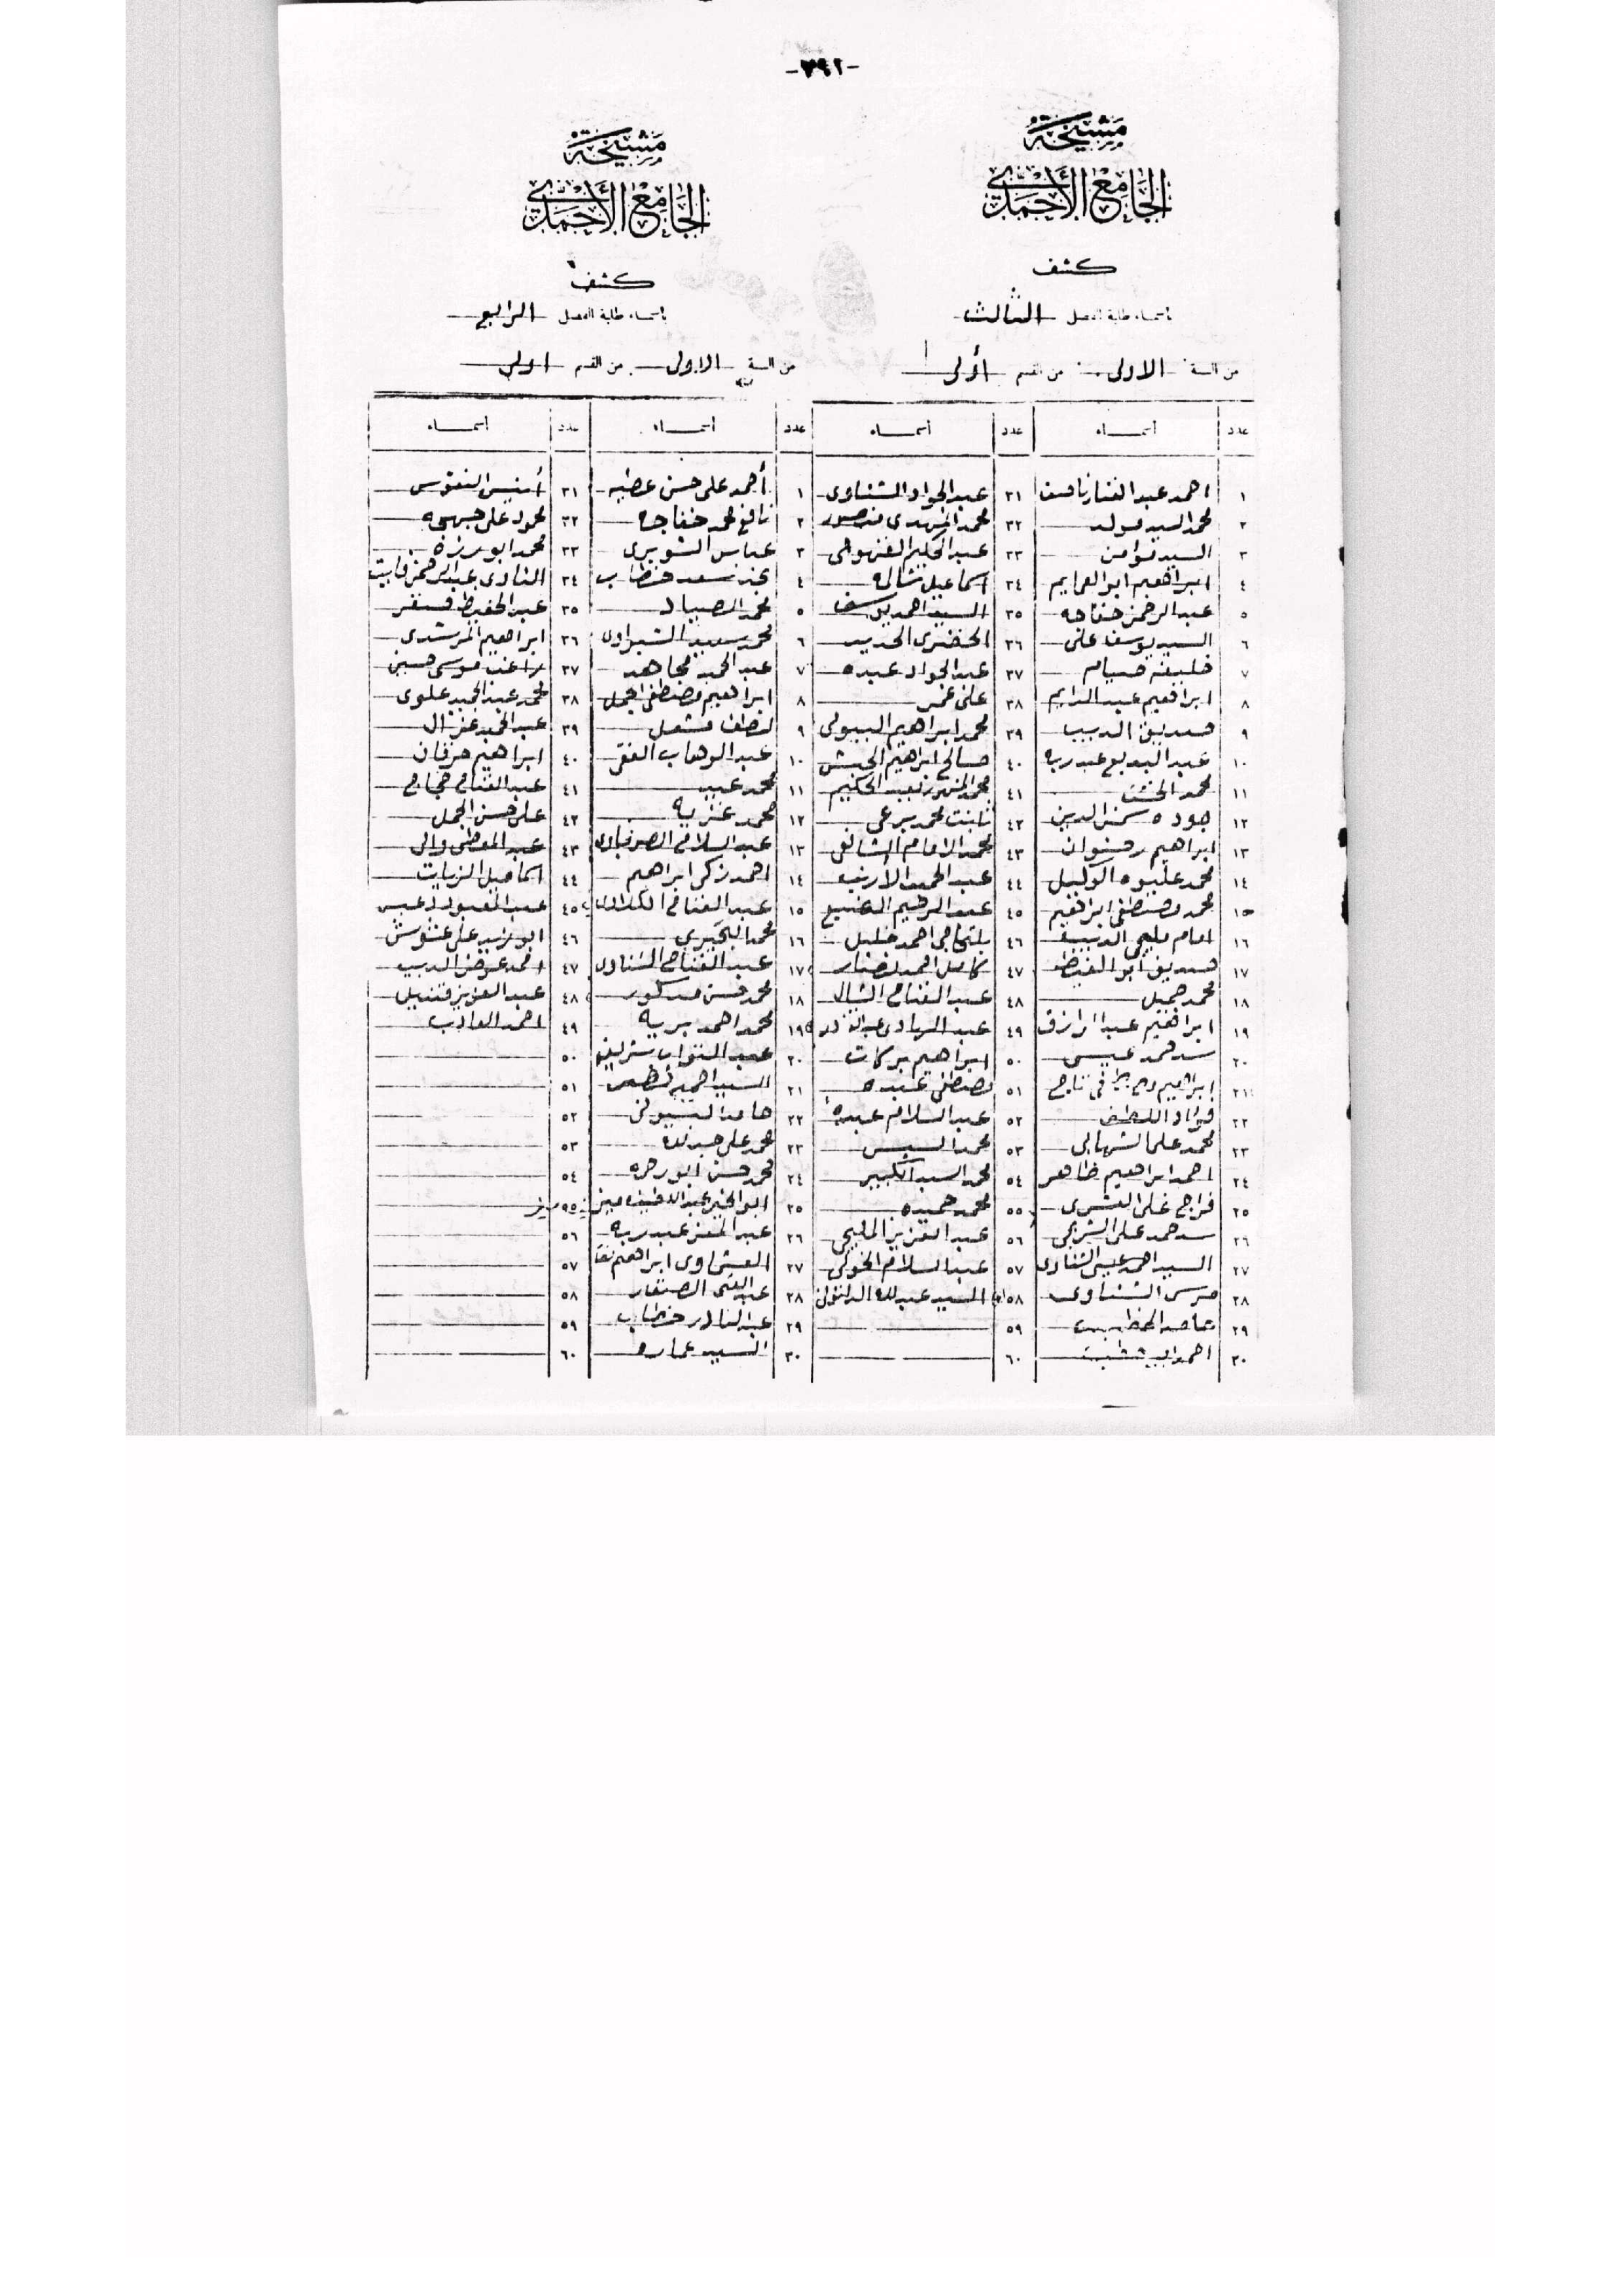 -٣٩٢-
مشيخة
الجامع الأحمدى
كشف
بأسماء طلبة الفصل الثالث
من السنة الاولى من القسم أولى
عدد أسماء عدد أسماء
١ احمد عبد الغفار ٣١ عبد الجواد الشناوى
٢ محمد السيد مولد ٣٢ محمد المهدى منصور
٣ السيد مؤمن ٣٣ عبد الحكيم
٤ ابراهيم ابو العزايم ٣٤ اسماعيل
٥ عبد الرحمن خفاجه ٣٥ السيد احمد يوسف
٦ السيد يوسف على ٣٦ الخضرى الحديد
٧ خليفه صيام ٣٧ عبد الجواد عبيده
٨ ابراهيم عبد الدايم ٣٨ على عمر
٩ صديق الديب ٣٩ محمد ابراهيم البيولى
١٠ عبد البديع عبد ربه ٤٠ صالح ابراهيم الحبشى
١١ محمد الخشت ٤١ محمد عبد الحكيم
١٢ جوده شمس الدين ٤٢ ثابت محمد برعى
١٣ ابراهيم رضوان ٤٣ محمد الامام الشافعى
١٤ محمد عليوه الوكيل ٤٤ عبد الحميد
١٥ محمد مصطفى ابراهيم ٤٥ عبد الرحيم الضبع
١٦ امام مليجى الديب ٤٦ بلتاجى احمد خليل
١٧ صديق ابو الغيط ٤٧ كامل احمد نصار
١٨ محمد جميل ٤٨ عبد الفتاح الشال
١٩ ابراهيم عبد الرازق ٤٩ عبد الهادى عبد القادر
٢٠ سيد حمد عيسى ٥٠ ابراهيم بركات
٢١ ابراهيم ٥١ مصطفى عبيده
٢٢ فؤاد ٥٢ عبد السلام عبده
٢٣ محمد على الشهابى ٥٣ محمد السيسى
٢٤ احمد ابراهيم طاهر ٥٤ محمد السيد الكبير
٢٥ فراج على العشرى ٥٥ محمد حميده
٢٦ سيد حمد على الشربجى ٥٦ عبد العزيز المليجى
٢٧ السيد احمد عيسى الشناوى ٥٧ عبد السلام الخولى
٢٨ مرسى الشناوى ٥٨ السيد عبد الله
٢٩ حامد الخطيب ٥٩
٣٠ احمد ٦٠
مشيخة
الجامع الأحمدى
كشف
بأسماء طلبة الفصل الرابع
من السنة الاولى من القسم اولى
عدد أسماء عدد أسماء
١ أحمد على حسن عطيه ٣١ أنيس
٢ نافع محمد خفاجه ٣٢ محمود على
٣ عباس الشويرى ٣٣ محمد ابو رزه
٤ سعد خطاب ٣٤ عبد الرحمن
٥ محمد الصياد ٣٥ عبد الحفيظ
٦ محمد سعيد الشبراوى ٣٦ ابراهيم المرشدى
٧ عبد الحميد مجاهد ٣٧ راغب موسى حسين
٨ ابراهيم مصطفى الجمل ٣٨ محمد عبد المجيد علوى
٩ لطفى مشعل ٣٩ عبد الحميد غزال
١٠ عبد الوهاب الفقى ٤٠ ابراهيم
١١ محمد عبيد ٤١ عبد الفتاح حجاج
١٢ محمد غزيه ٤٢ على حسن الجمل
١٣ عبد السلام ٤٣ عبد المعطى والى
١٤ احمد زكى ابراهيم ٤٤ اسماعيل الزيات
١٥ عبد الفتاح ٤٥ عبد المعبود دعبس
١٦ محمد البحيرى ٤٦ ابو زيد على
١٧ عبد الفتاح الشناوى ٤٧ احمد عوض الديب
١٨ محمد حسن مدكور ٤٨ عبد العزيز قنديل
١٩ محمد احمد بريه ٤٩ احمد
٢٠ عبد التواب شريف ٥٠
٢١ السيد احمد ٥١
٢٢ حامد البسيونى ٥٢
٢٣ محمد على ٥٣
٢٤ محمد حسن ٥٤
٢٥ ابو الخير عبد اللطيف ٥٥
٢٦ عبد المعز عبد ربه ٥٦
٢٧ العشماوى ابراهيم ٥٧
٢٨ عبد الغنى ٥٨
٢٩ عبد القادر خطاب ٥٩
٣٠ السيد عماره ٦٠